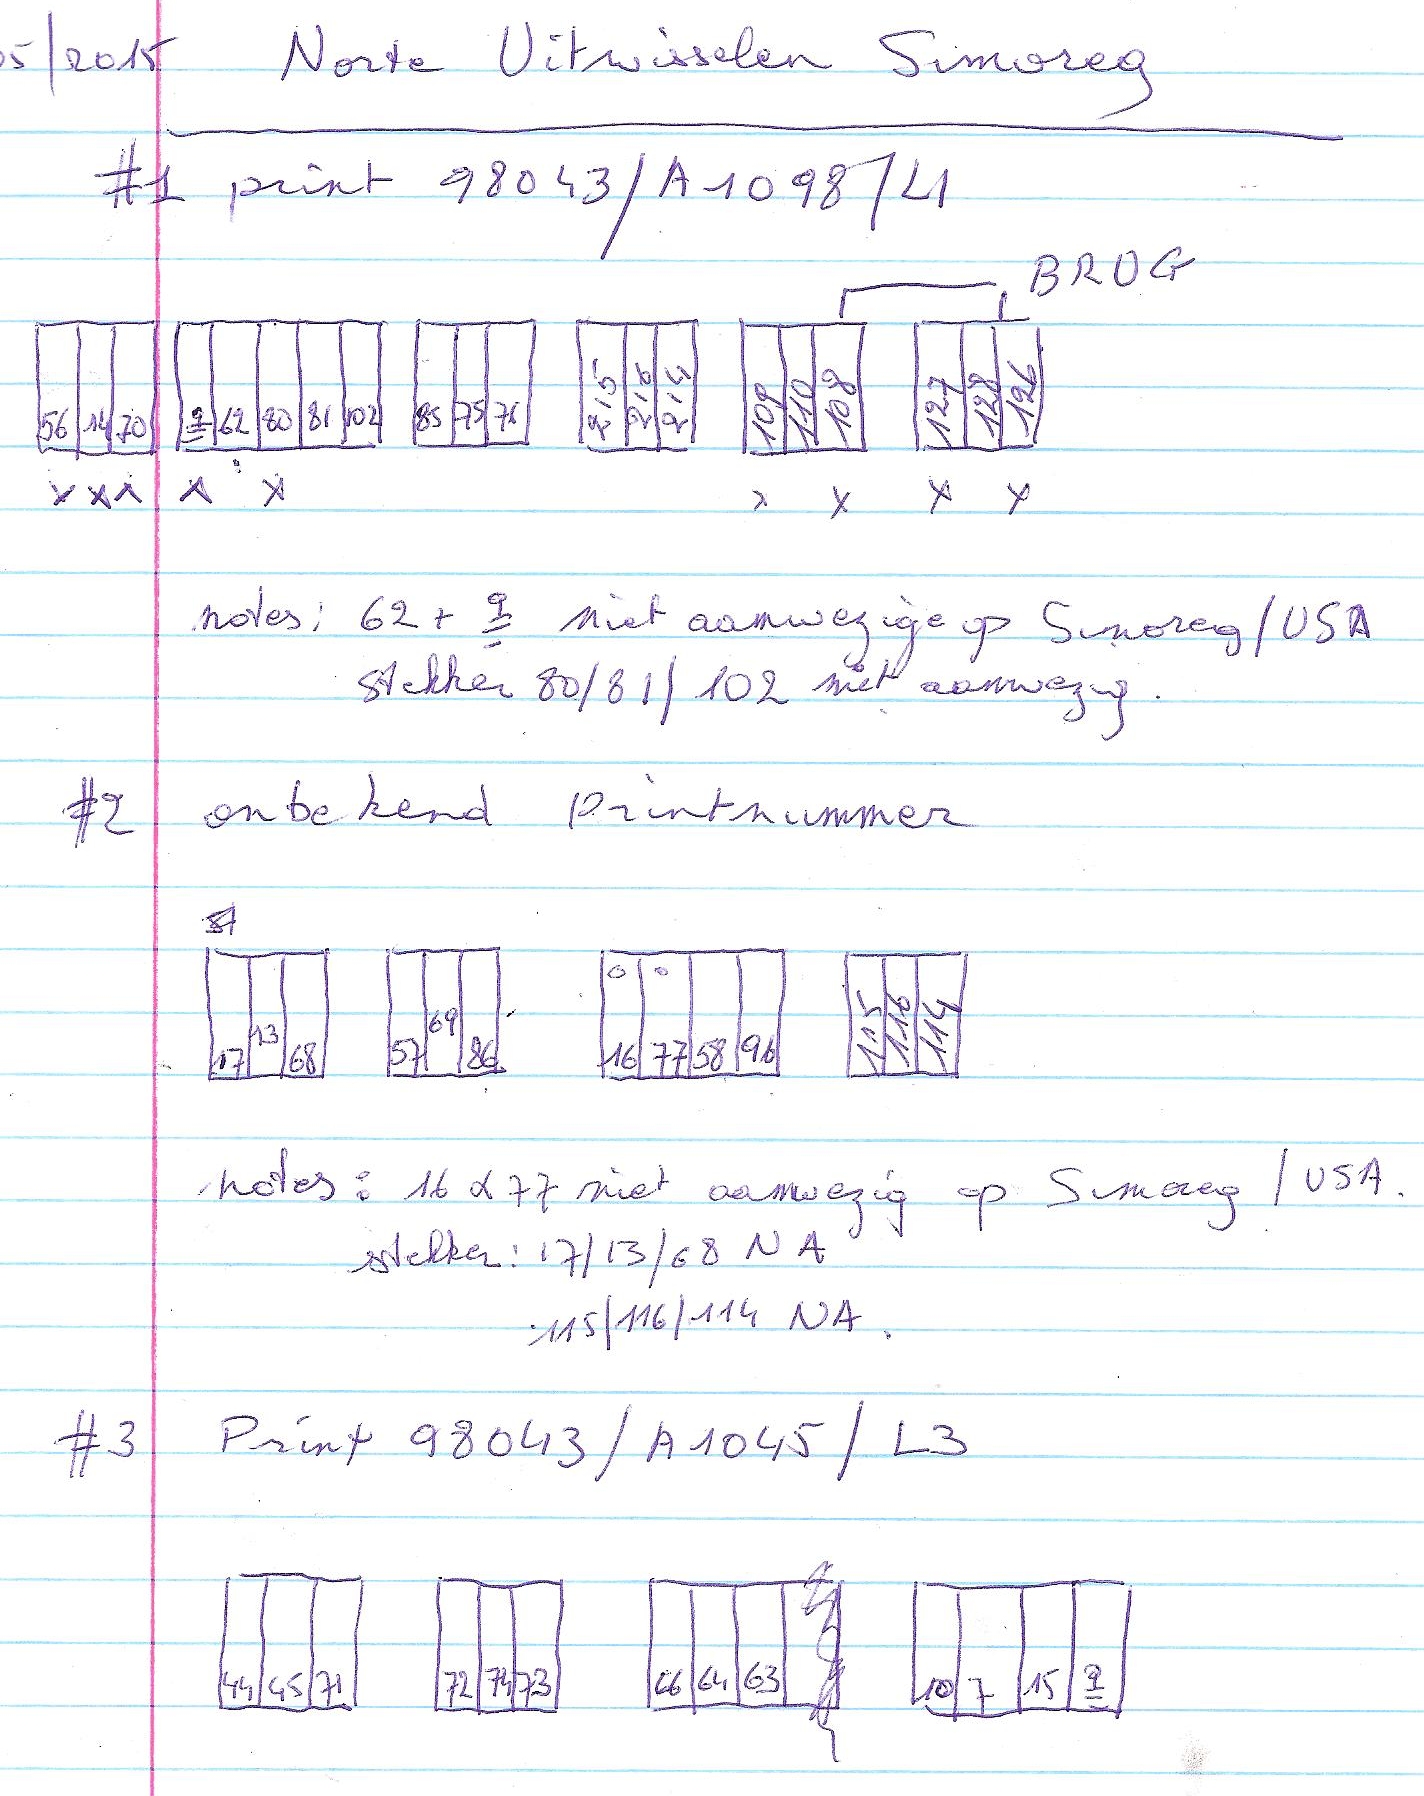 05/2015 Norte Uitwisselen Simoreg
#1 print 98043/A1098/L1
BRUG
56 14 70 9 62 80 81 102 85 75 76 215 216 214 109 110 108 127 128 126
x x x x x x x x x
notes: 62 + 9 niet aanwezige op Simoreg/USA
stekker 80/81/102 niet aanwezig.
#2 onbekend printnummer
17 13 68 57 69 86 16 77 58 96 115 116 114
notes: 16 & 77 niet aanwezig op Simoreg /USA.
stekker: 17/13/68 NA
115/116/114 NA.
#3 Print 98043/A1045/L3
44 45 71 72 74 73 66 64 63 10 7 15 9